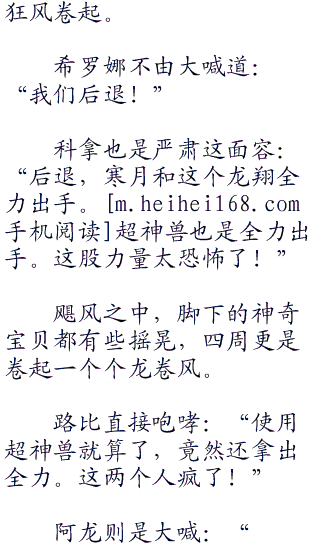 狂风卷起。
希罗娜不由大喊道：
“我们后退！”
科拿也是严肃这面容：
“后退，寒月和这个龙翔全
力出手。[m.heihei168.com
手机阅读]超神兽也是全力出
手。这股力量太恐怖了！”
飓风之中，脚下的神奇
宝贝都有些摇晃，四周更是
卷起一个个龙卷风。
路比直接咆哮：“使用
超神兽就算了，竟然还拿出
全力。这两个人疯了！”
阿龙则是大喊：“